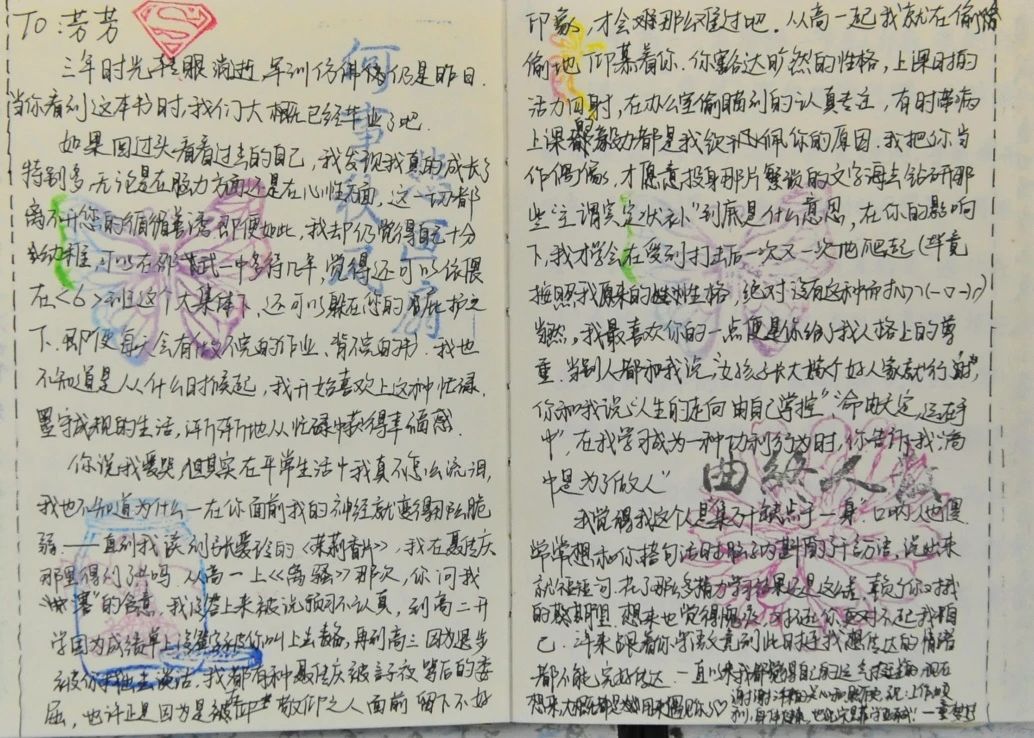 TO:芳芳
三年时光转眼消逝,军训仿佛仍是昨日.
当你看到这本书时,我们大概已经毕业了吧.
如果回过头看看过去的自己,我发现我真的成长了
特别多,无论是在脑力方面还是在心性方面,这一切都
离不开您的循循善诱.即便如此,我却仍觉得自己十分
幼稚,可以在 一中多待几年,觉得还可以依偎
在<6>班这个大集体下、还可以躲在您的庇护之
下.即便每天会有做不完的作业、背不完的书.我也
不知道是从什么时候起,我开始喜欢上这种忙碌、
墨守成规的生活,渐渐地从忙碌中获得幸福感.
你说我爱哭,但其实在平常生活中我真不怎么流泪,
我也不知道为什么一在你面前我的神经就变得那么脆
弱.——直到我读到张爱玲的《茉莉香片》,我在聂传庆
那里得到了 .从高一上《离骚》那次,你问我
的含意,我没答上来被说预习不认真,到高二开
学因为成绩单上 被你叫上去 ,再到高三因为退步
被你 去谈话,我都有种聂传庆被言子夜骂后的委
屈,也许正是因为是被 敬仰之人面前留下不好
印象,才会难那么难过吧.从高一起我就在偷偷
偷地仰慕着你.你豁达旷然的性格,上课时的
活力四射,在办公室偷瞄到的认真专注,有时带病
上课 毅力都是我钦佩你的原因.我把你当
作偶像,才愿意投身那片繁琐的文字海去钻研那
些“主谓宾定状补”到底是什么意思,在你的影响
下,我才学会在受到打击后一次又一次地爬起(毕竟
按照我原来的性格,绝对没有这种
当然,我最喜欢你的一点便是你给了我人格上的尊
重.当别人都和我说,女孩子长大嫁个好人家就行 时,
你和我说“人生的走向由自己掌控”“命由天定,运在手
中”,在我学习成为一种功利行为时,你告诉我“高
中是为了做人”
何事秋风悲画扇
曲终人散
我觉得我这个人是集万千缺点于一身.口呐人也傻.
常常想和你搭句话时脑子内斟酌了千万遍,说出来
就 短句.花了那么多精力学习结果还是这么差,辜负了你对我
的 期望.想来也觉得愧疚,
己. 看你, 到此时 我想传达的情绪
都不能完好传达.一直以来我都觉得自己的运气 ,现在
想来,大概都是 用来遇见你了♡
谢谢 三年的关心和照顾,祝:工作顺
利,身体健康,